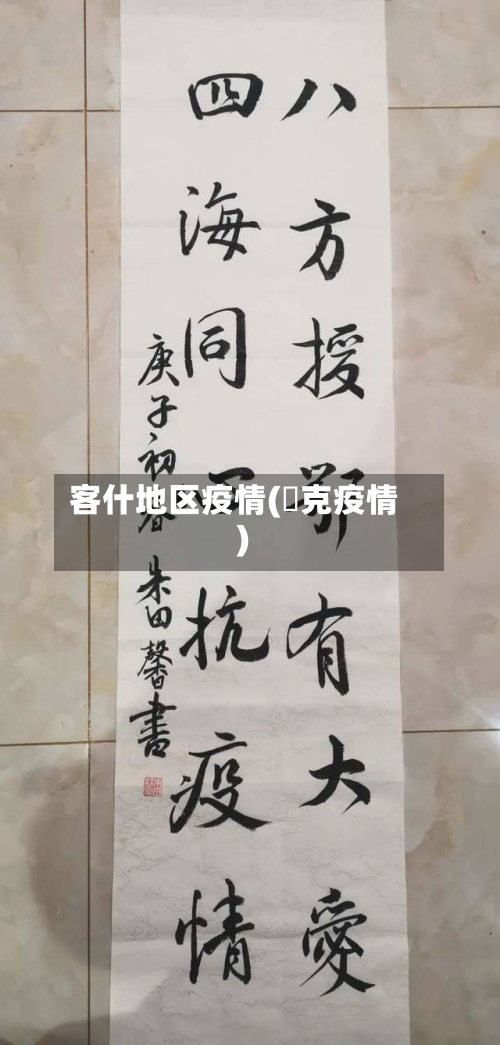 八方授鄂有大愛
四海同
抗疫情
庚子初春 朱田馨書
客什地区疫情(克疫情
)